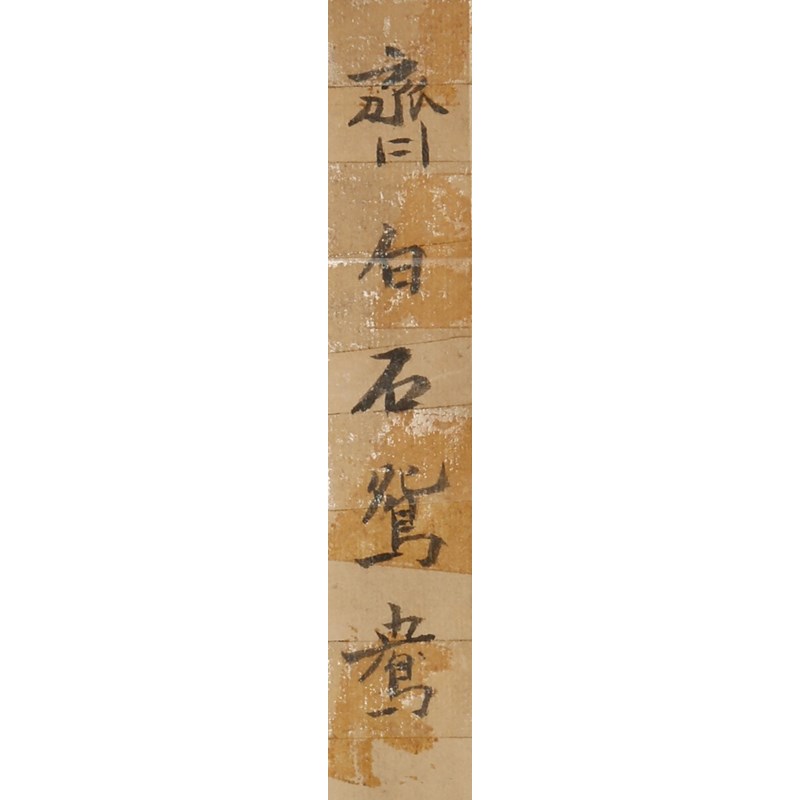 齊白石鴛鴦